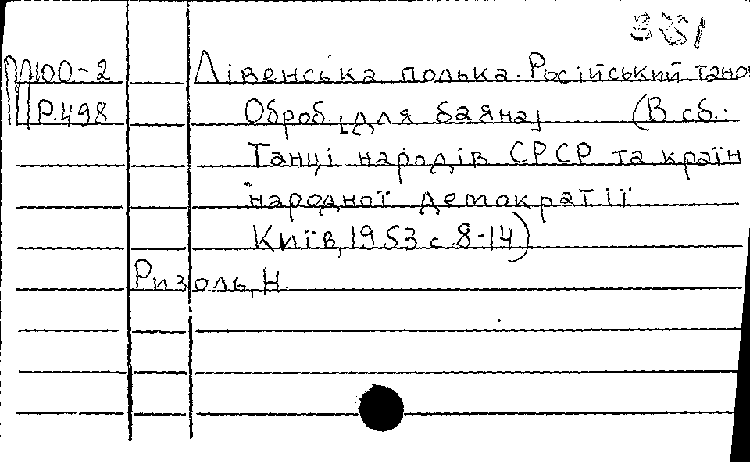 381
Ю0-2 Лівенська полька. Російський тано
Р498 Оброб. [для баяна] (В сб.:
Танці народів СРСР та країн
народної демократії
Київ, 1953 с 8-14)
Ризоль, Н.